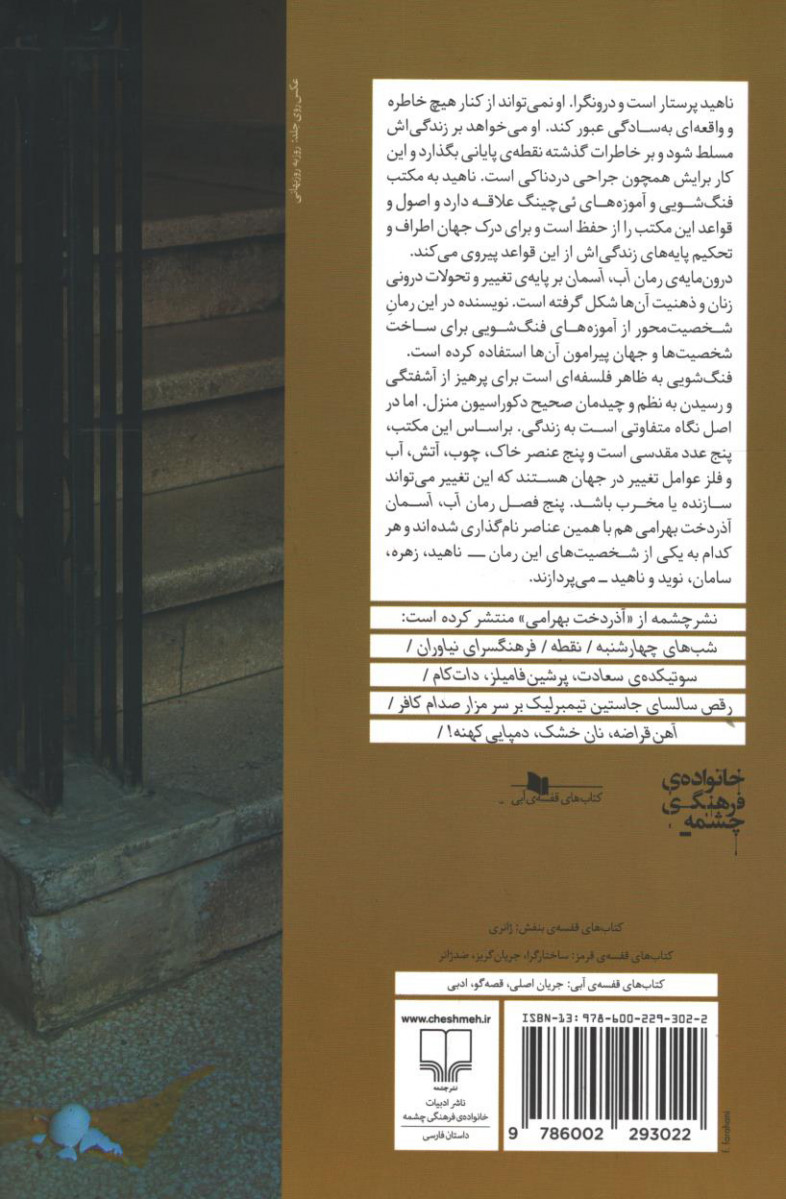 ناهید پرستار است و درونگرا. او نمی‌تواند از کنار هیچ خاطره
و واقعه‌ای به‌سادگی عبور کند. او می‌خواهد بر زندگی‌اش
مسلط شود و بر خاطرات گذشته نقطه‌ی پایانی بگذارد و این
کار برایش همچون جراحی دردناکی است. ناهید به مکتب
فنگ‌شویی و آموزه‌های ئی‌چینگ علاقه دارد و اصول و
قواعد این مکتب را از حفظ است و برای درک جهان اطراف و
تحکیم پایه‌های زندگی‌اش از این قواعد پیروی می‌کند.
درون‌مایه‌ی رمان آب، آسمان بر پایه‌ی تغییر و تحولات درونی
زنان و ذهنیت آن‌ها شکل گرفته است. نویسنده در این رمانِ
شخصیت‌محور از آموزه‌های فنگ‌شویی برای ساخت
شخصیت‌ها و جهان پیرامون آن‌ها استفاده کرده است.
فنگ‌شویی به ظاهر فلسفه‌ای است برای پرهیز از آشفتگی
و رسیدن به نظم و چیدمان صحیح دکوراسیون منزل. اما در
اصل نگاه متفاوتی است به زندگی. براساس این مکتب،
پنج عدد مقدسی است و پنج عنصر خاک، چوب، آتش، آب
و فلز عوامل تغییر در جهان هستند که این تغییر می‌تواند
سازنده یا مخرب باشد. پنج فصل رمان آب، آسمان
آذردخت بهرامی هم با همین عناصر نام‌گذاری شده‌اند و هر
کدام به یکی از شخصیت‌های این رمان ــ ناهید، زهره،
سامان، نوید و ناهید ــ می‌پردازند.
نشرچشمه از «آذردخت بهرامی» منتشر کرده است:
شب‌های چهارشنبه / نقطه / فرهنگسرای نیاوران /
سوتیکده‌ی سعادت، پرشین‌فامیلز، دات‌کام /
رقص سالسای جاستین تیمبرلیک بر سر مزار صدام کافر /
آهن‌قراضه، نان خشک، دمپایی کهنه! /
خانواده‌ی
فرهنگی
چشمه
کتاب‌های قفسه‌ی آبی
کتاب‌های قفسه‌ی بنفش: ژانری
کتاب‌های قفسه‌ی قرمز: ساختارگرا، جریان‌گریز، ضدژانر
کتاب‌های قفسه‌ی آبی: جریان اصلی، قصه‌گو، ادبی
ISBN-13: 978-600-229-302-2
9 786002 293022
www.cheshmeh.ir
نشرچشمه
ناشر ادبیات
خانواده‌ی فرهنگی چشمه
داستان فارسی
عکس روی جلد: روزبه روزبهانی
f. farahani